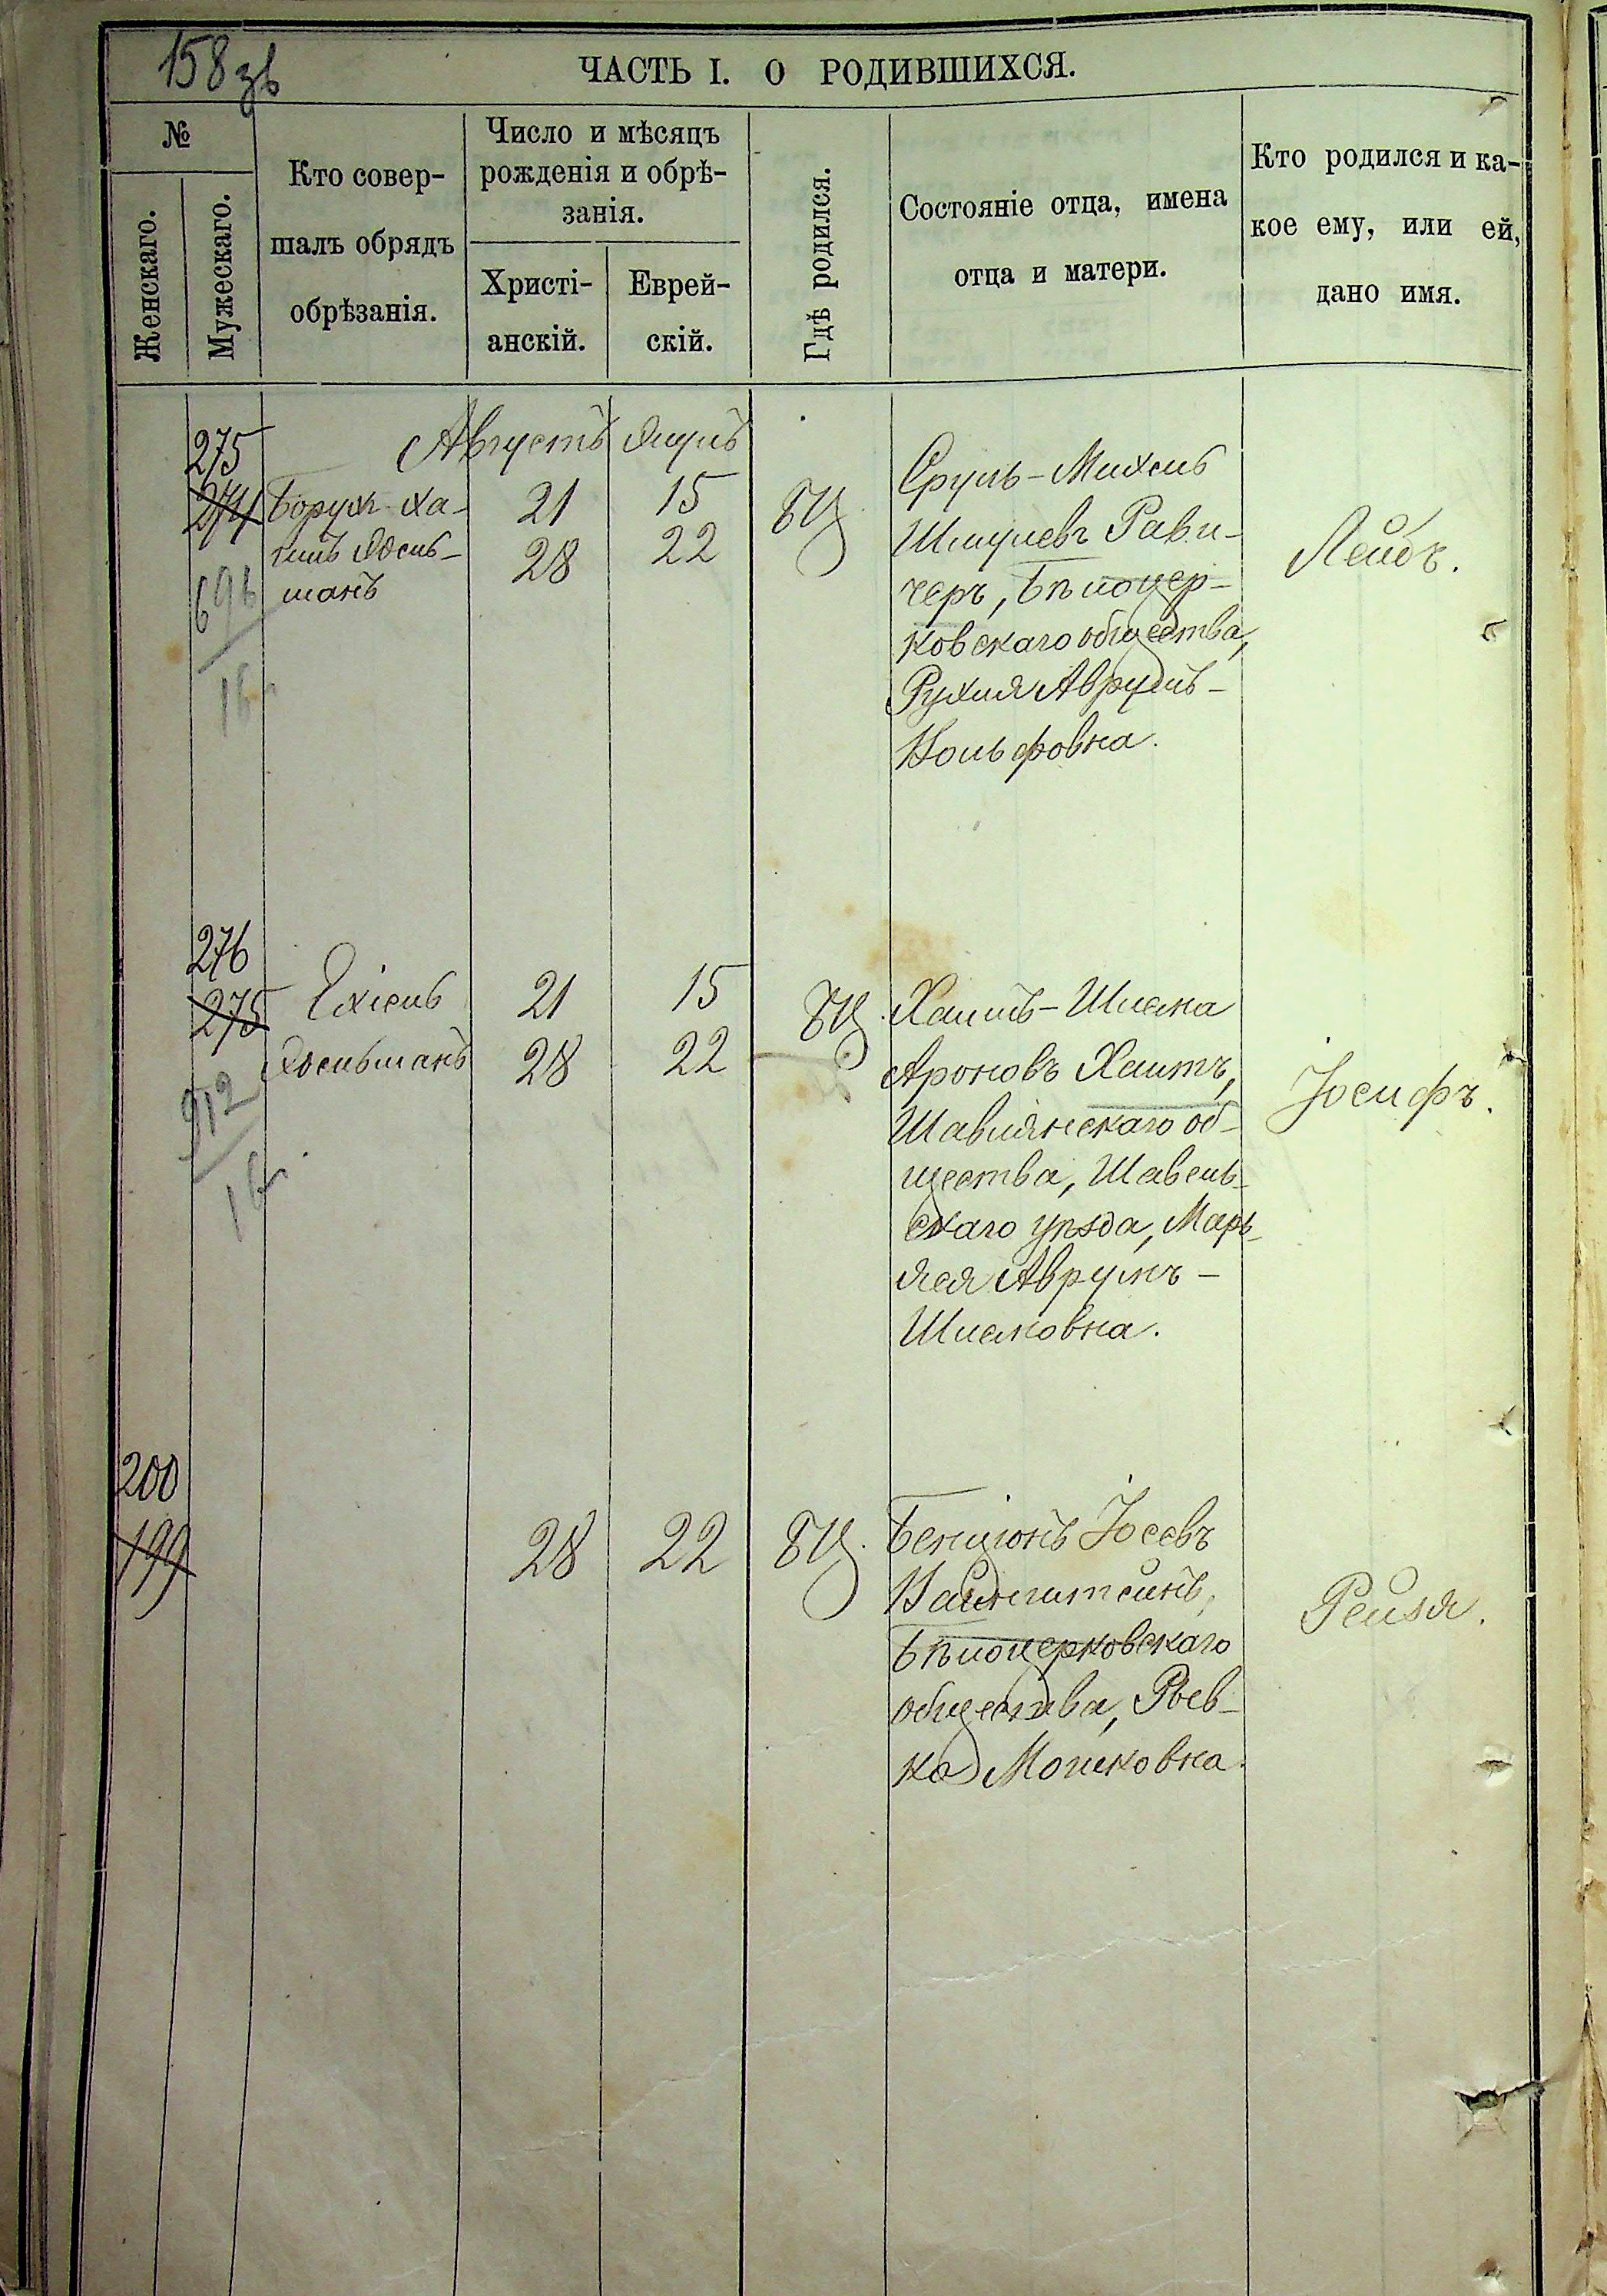 158 зв
ЧАСТЬ I. О РОДИВШИХСЯ.
№
Женскаго.
Мужескаго.
Кто совер-
шалъ обрядъ
обрѣзанія.
Число и мѣсяцъ
рожденія и обрѣ-
занія.
Христі-
анскій.
Еврей-
скій.
Гдѣ родился.
Состояніе отца, имена
отца и матери.
Кто родился и ка-
кое ему, или ей,
дано имя.
Августъ
275
274
696
Борухъ Ха-
имъ
манъ
21
28
15
22
БЦ
Сруль-Михель
Шмулевъ Рави-
черъ, Бѣлоцер-
ковскаго общества,
Рухля Аврумъ-
Вольфовна.
Лейбъ.
276
275
912
Ехіель
21
28
15
22
БЦ.
Хаимъ-Шлема
Ароновъ Хаитъ,
Шавлянскаго об-
щества, Шавель-
скаго уѣзда, Марь-
яся Аврумъ-
Шлемовна.
Іосифъ.
200
199
28
22
БЦ.
Бенціонъ Іосевъ
Вайнштейнъ,
Бѣлоцерковскаго
общества, Рыв-
ка Мошковна.
Рейзя.